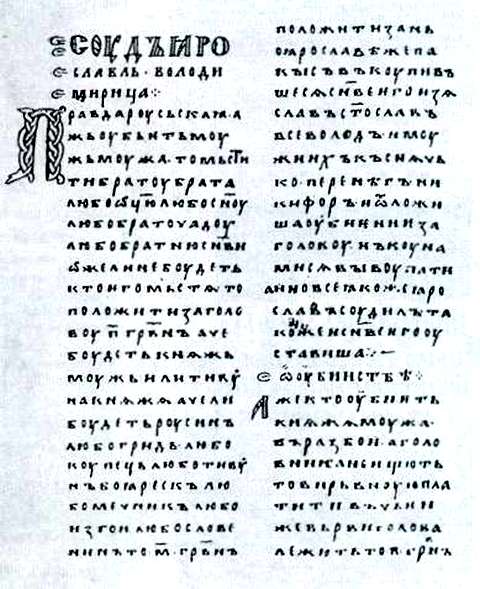 СОУДЪ ꙖРО
СЛАВЛЬ · ВОЛОДИ
МИРИЦА ·:
Правда роусьскаꙗ · а
жь оубьѥть моу
жь моужа · то мьсти
ти братоу брата
любо ѡц҃ю любо сн҃оу
любо братоу чадоу
любо братню сн҃ви
ѡже ли не боудеть
кто ѥго мьстѧ то
положити за голо
воу · п҃ · грв҃нъ аче
боудеть кнѧжь
моужь или тивоу
на кнѧжѧ аче ли
боудеть роусинъ
любо гридь · любо
коупець любо тивоу
нъ боꙗрескъ лю
бо мечникъ любо
изгои любо слове
нинъ то · м҃ · грв҃нъ
положити за нь
о ꙗрославѣ же па
кы съвъкоупивъ
шесѧ сн҃ве ѥго изѧ
славъ ст҃ославъ
всеволодъ и моу
жи ихъ къснѧчь
ко · перенѣгъ ни
кифоръ и ѿложи
ша оубиѥниѥ за
головоу нъ коуна
ми сѧ выкоупати
а ино все ꙗкоже ꙗро
славъ соудилъ та
коже и сн҃ве ѥго оу
ставиша ·:—
ѡ оубииствѣ ·:
Аже кто оубиѥть
кнѧжѧ моужа ·
въ разбои · а голо
вника не ищють
то вирьвноую пла
тити въ чьѥи
же вьрви голова
лежить то п҃ · грв҃нъ